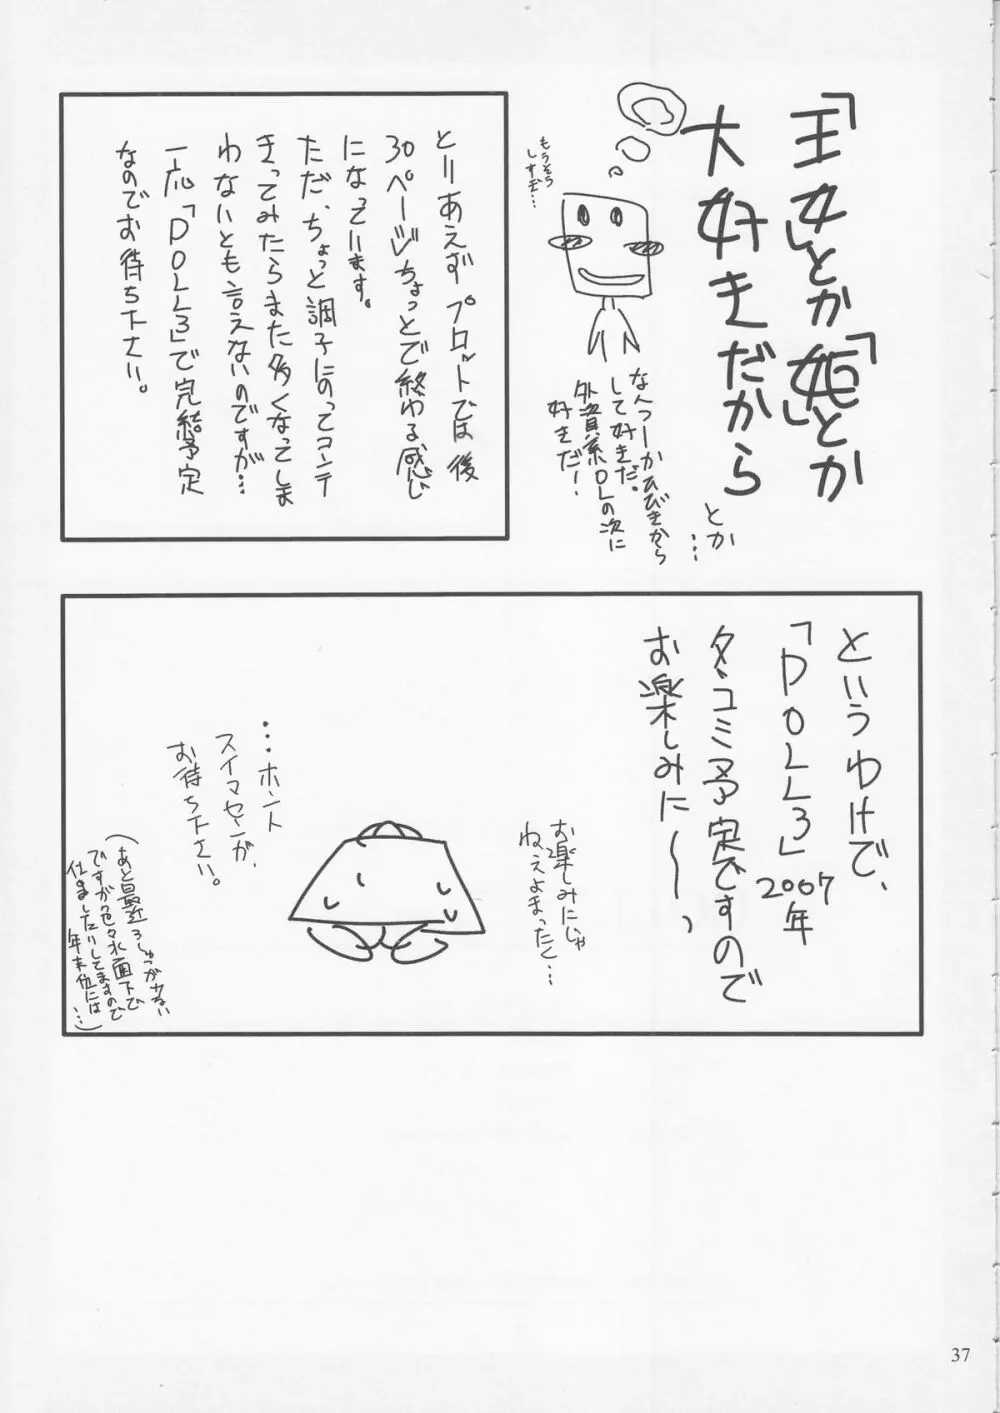 「王女」とか「姫」とか
大好きだから
とか
…
もうそう
しすぎ…
なんつーかひびきから
して好きだ。
外資系OLの次に
好きだー。
とりあえずプロットでは後
30ページちょっとで終わる感じ
になっています。
ただ、ちょっと調子にのってコンテ
きってみたらまた多くなってしま
わないとも言えないのですが…
一応「DOLL3」で完結予定
なのでお待ち下さい。
というわけで、
「DOLL3」2007年
冬コミ予定ですので
お楽しみに〜っ
お楽しみにじゃ
ねえよまったく…
…ホント
スイマセンが、
お待ち下さい。
(あと最近ろしゅつが少ない
ですが色々水面下で
仕こましたりしてますので
年末位には
…)
37